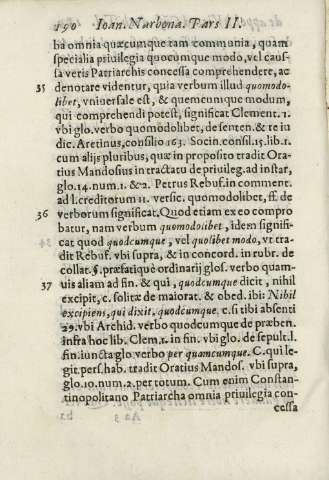 190 Ioan. Narbona. Pars II.
ba omnia quæcumque tam communia, quam
specialia priuilegia quocumque modo, vel cau-
sa veris Patriarchis concessa comprehendere, ac
35 denotare videntur, quia verbum illud quomodo-
libet, vniuersale est, & quemcumque modum,
qui comprehendi potest, significat Clement. 1.
vbi glo. verbo quomodolibet, de senten. & re iu
dic. Aretinus, consilio 163. Socin. consil. 15. lib. 1.
cum alijs pluribus, quæ in proposito tradit Ora-
tius Mandosius in tractatu de priuileg. ad instar,
glo. 14. num. 1. & 2. Petrus Rebuf. in comment.
ad l. creditorum 11. versic. quomodolibet, ff. de
36 verborum significat. Quod etiam ex eo compro
batur, nam verbum quomodolibet, idem signifi-
cat quod quodcumque, vel quolibet modo, vt tra-
dit Rebuf. vbi supra, & in concord. in rubr. de
collat. §. præfatique ordinarij glos. verbo quam-
37 uis aliam ad fin. & qui, quodcumque dicit, nihil
excipit, c. solitæ de maiorat. & obed. ibi: Nihil
excipiens, qui dixit, quodcumque. c. si tibi absenti
29. vbi Archid. verbo quodcumque de præben.
infra hoc lib. Clem. 1. in fin. vbi glo. de sepult. l.
fin. iuncta glo. verbo per quamcumque. C. qui le-
git. pers. hab. tradit Oratius Mandos. vbi supra,
glo. 10. num. 2. per totum. Cum enim Constan-
tinopolitano Patriarcha omnia priuilegia con-
cessa